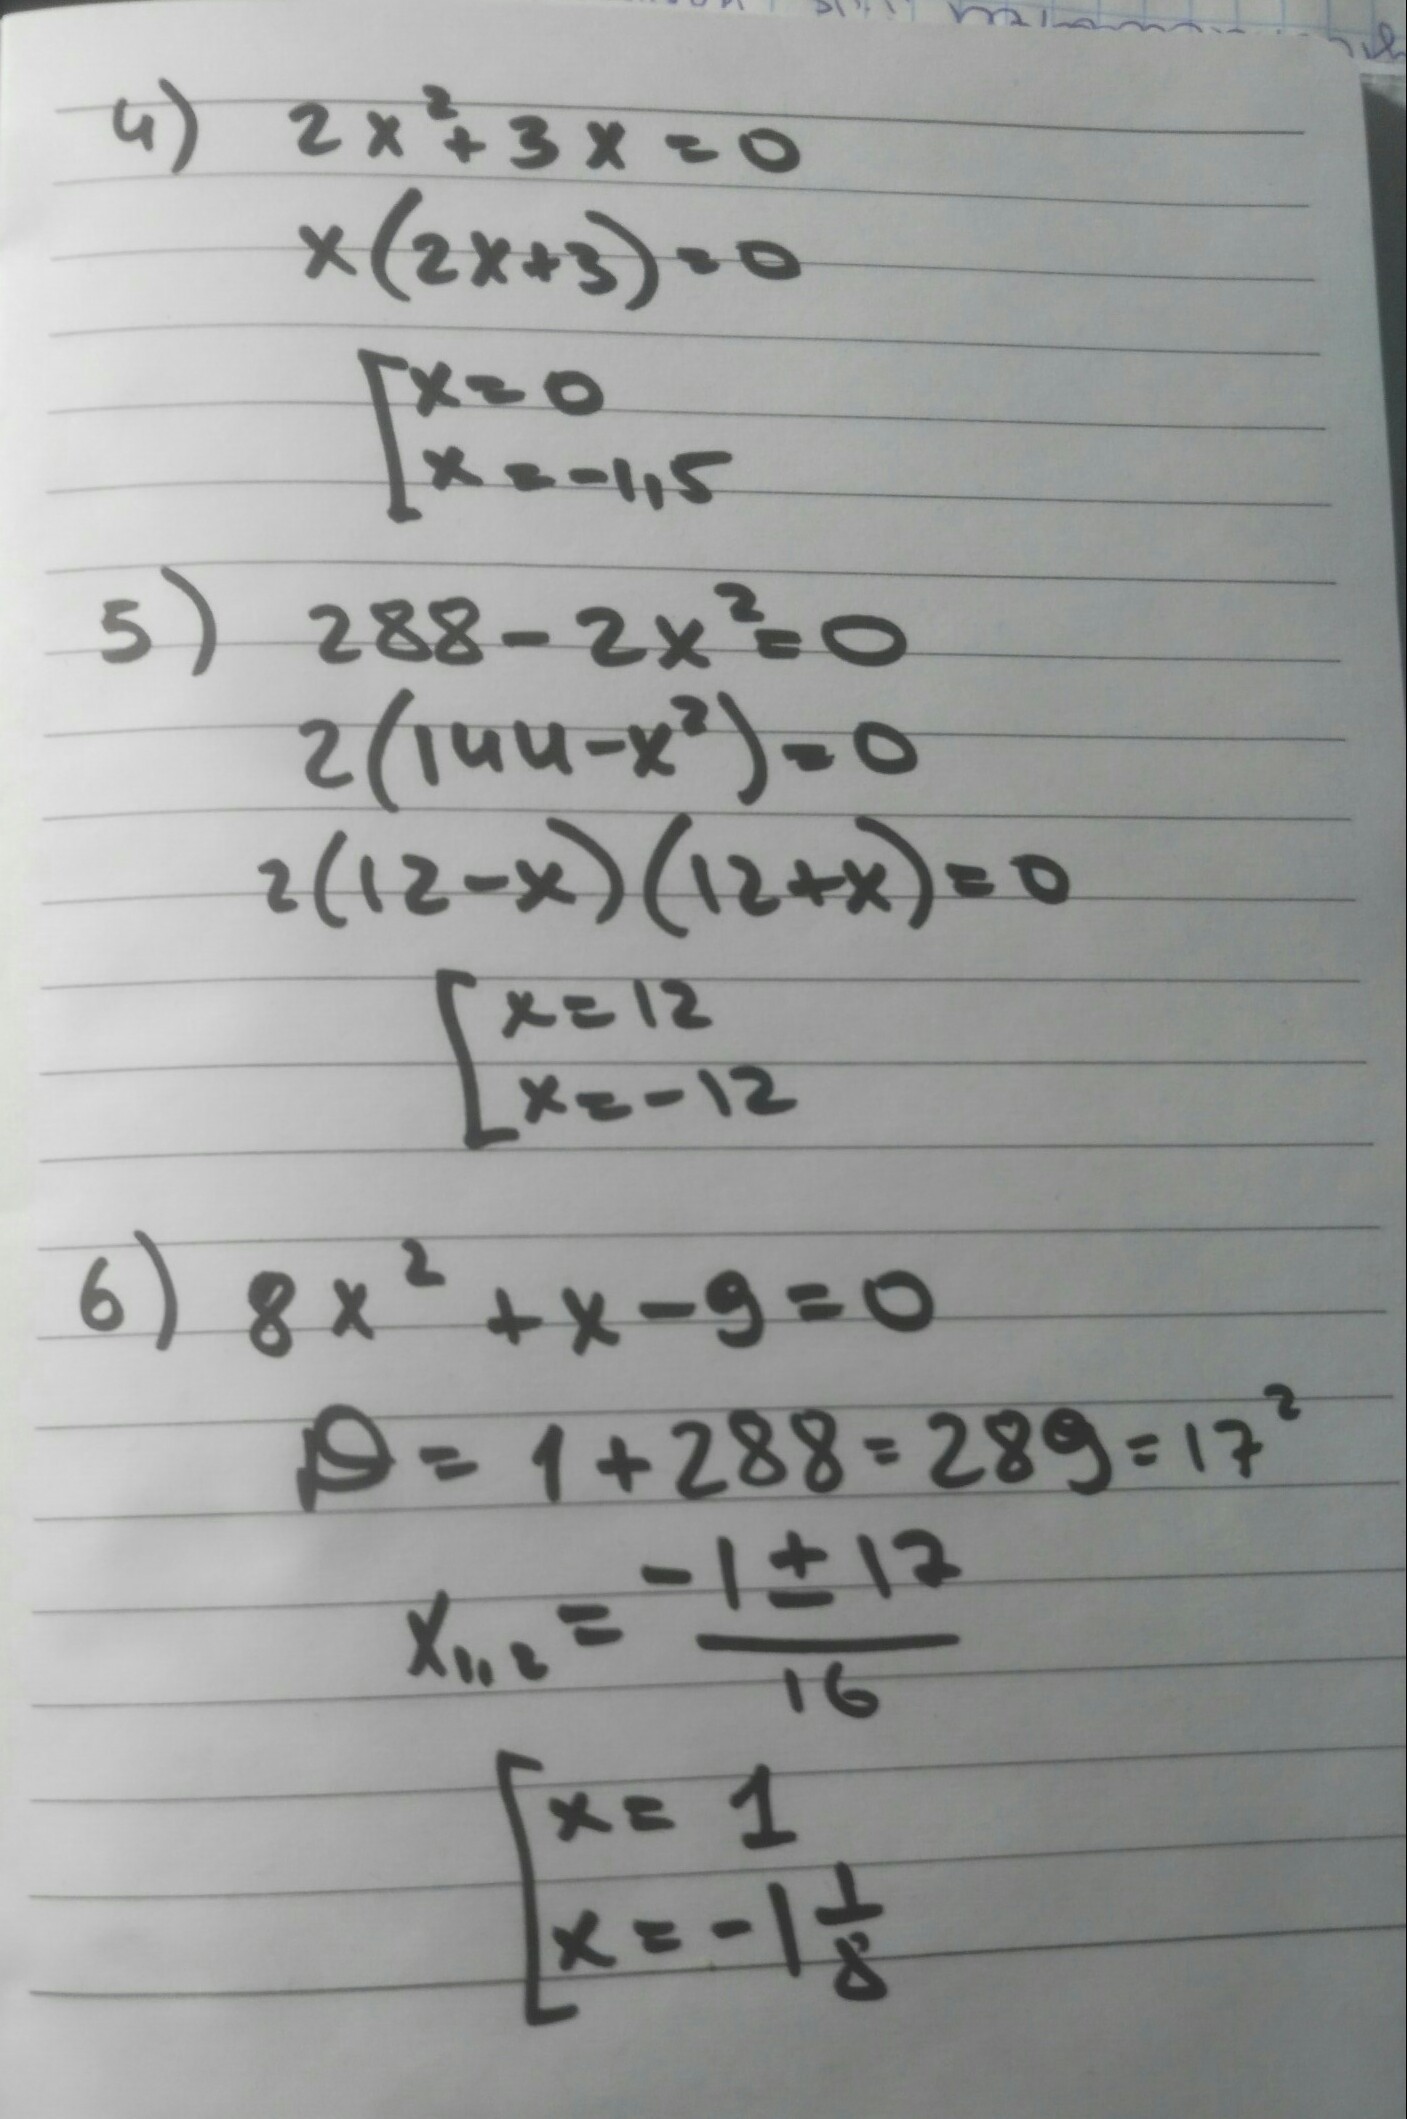 4) 2x²+3x=0
x(2x+3)=0
x=0
x=-1,5
5) 288-2x²=0
2(144-x²)=0
2(12-x)(12+x)=0
x=12
x=-12
6) 8x²+x-9=0
D=1+288=289=17²
x₁,₂=(-1±17)/16
x=1
x=-1 1/8